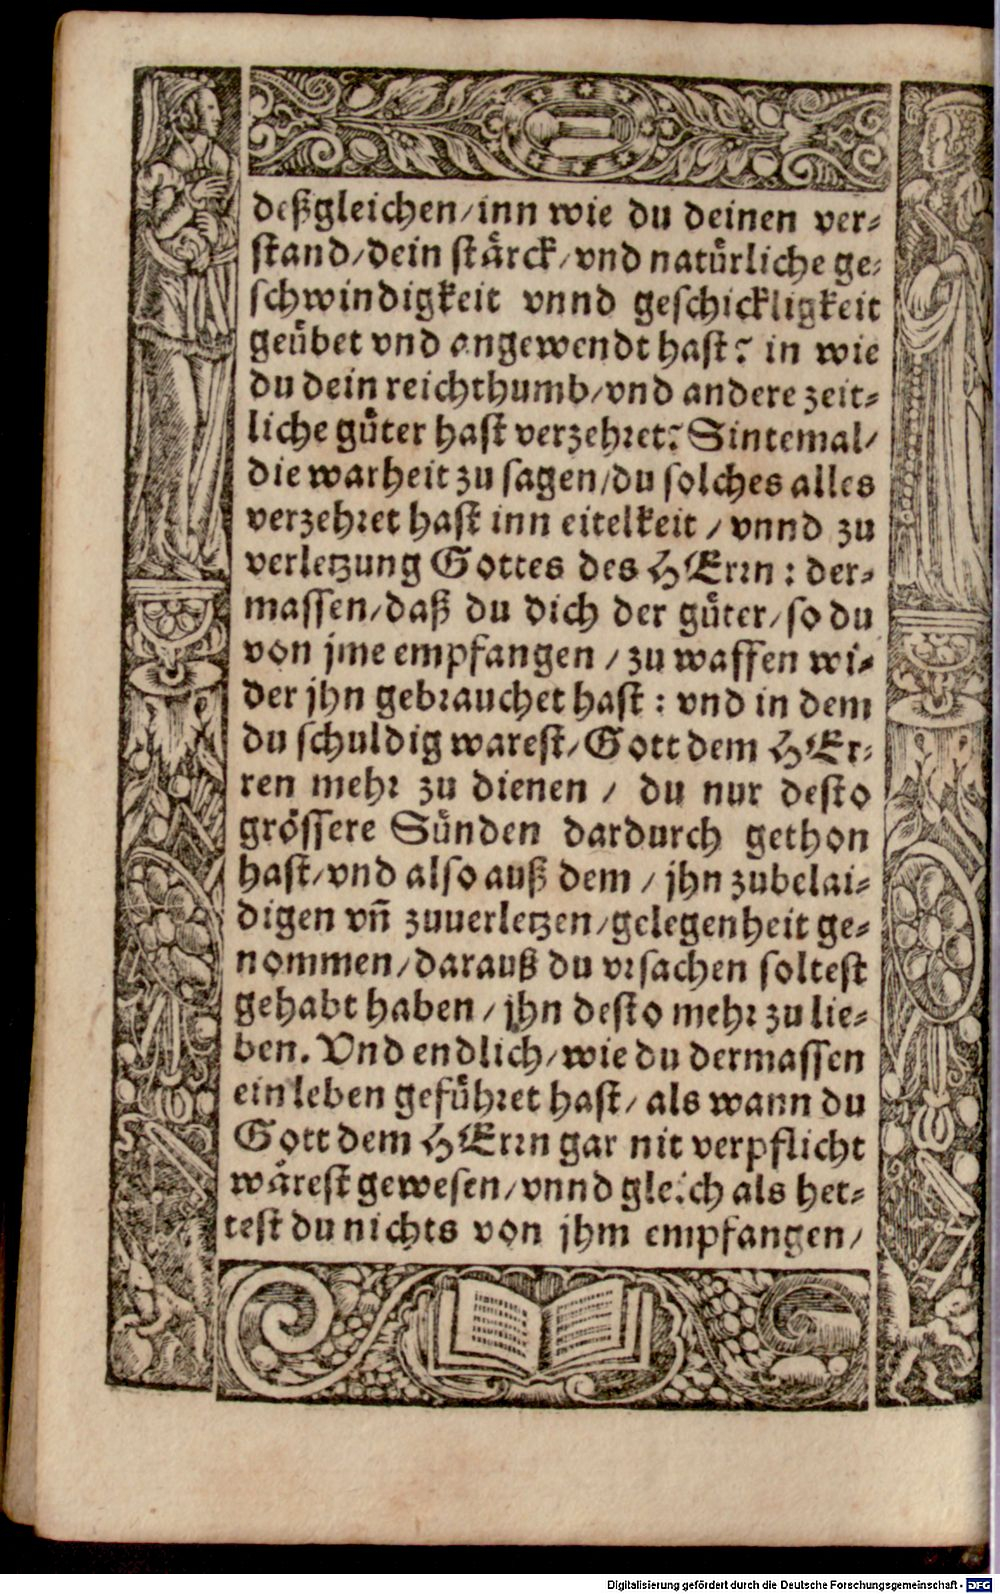 deßgleichen/inn wie du deinen ver⸗
stand/dein stårck/vnd natůrliche ge⸗
schwindigkeit vnnd geschickligkeit
geůbet vnd angewendt hast? in wie
du dein reichthumb/vnd andere zeit⸗
liche gůter hast verzehret? Sintemal/
die warheit zu sagen/du solches alles
verzehret hast inn eitelkeit / vnnd zu
verletzung Gottes des HErrn : der⸗
massen/daß du dich der gůter/so du
von jme empfangen / zu waffen wi⸗
der jhn gebrauchet hast : vnd in dem
du schuldig warest/Gott dem HEr⸗
ren mehr zu dienen / du nur desto
grössere Sůnden dardurch gethon
hast/vnd also auß dem / jhn zubelai⸗
digen vn̄ zuuerletzen/gelegenheit ge⸗
nommen/darauß du vrsachen soltest
gehabt haben / jhn desto mehr zu lie⸗
ben. Vnd endlich/wie du dermassen
ein leben gefůhret hast/ als wann du
Gott dem HErrn gar nit verpflicht
wårest gewesen/vnnd gleich als het⸗
test du nichts von jhm empfangen/
Digitalisierung gefördert durch die Deutsche Forschungsgemeinschaft - DFG